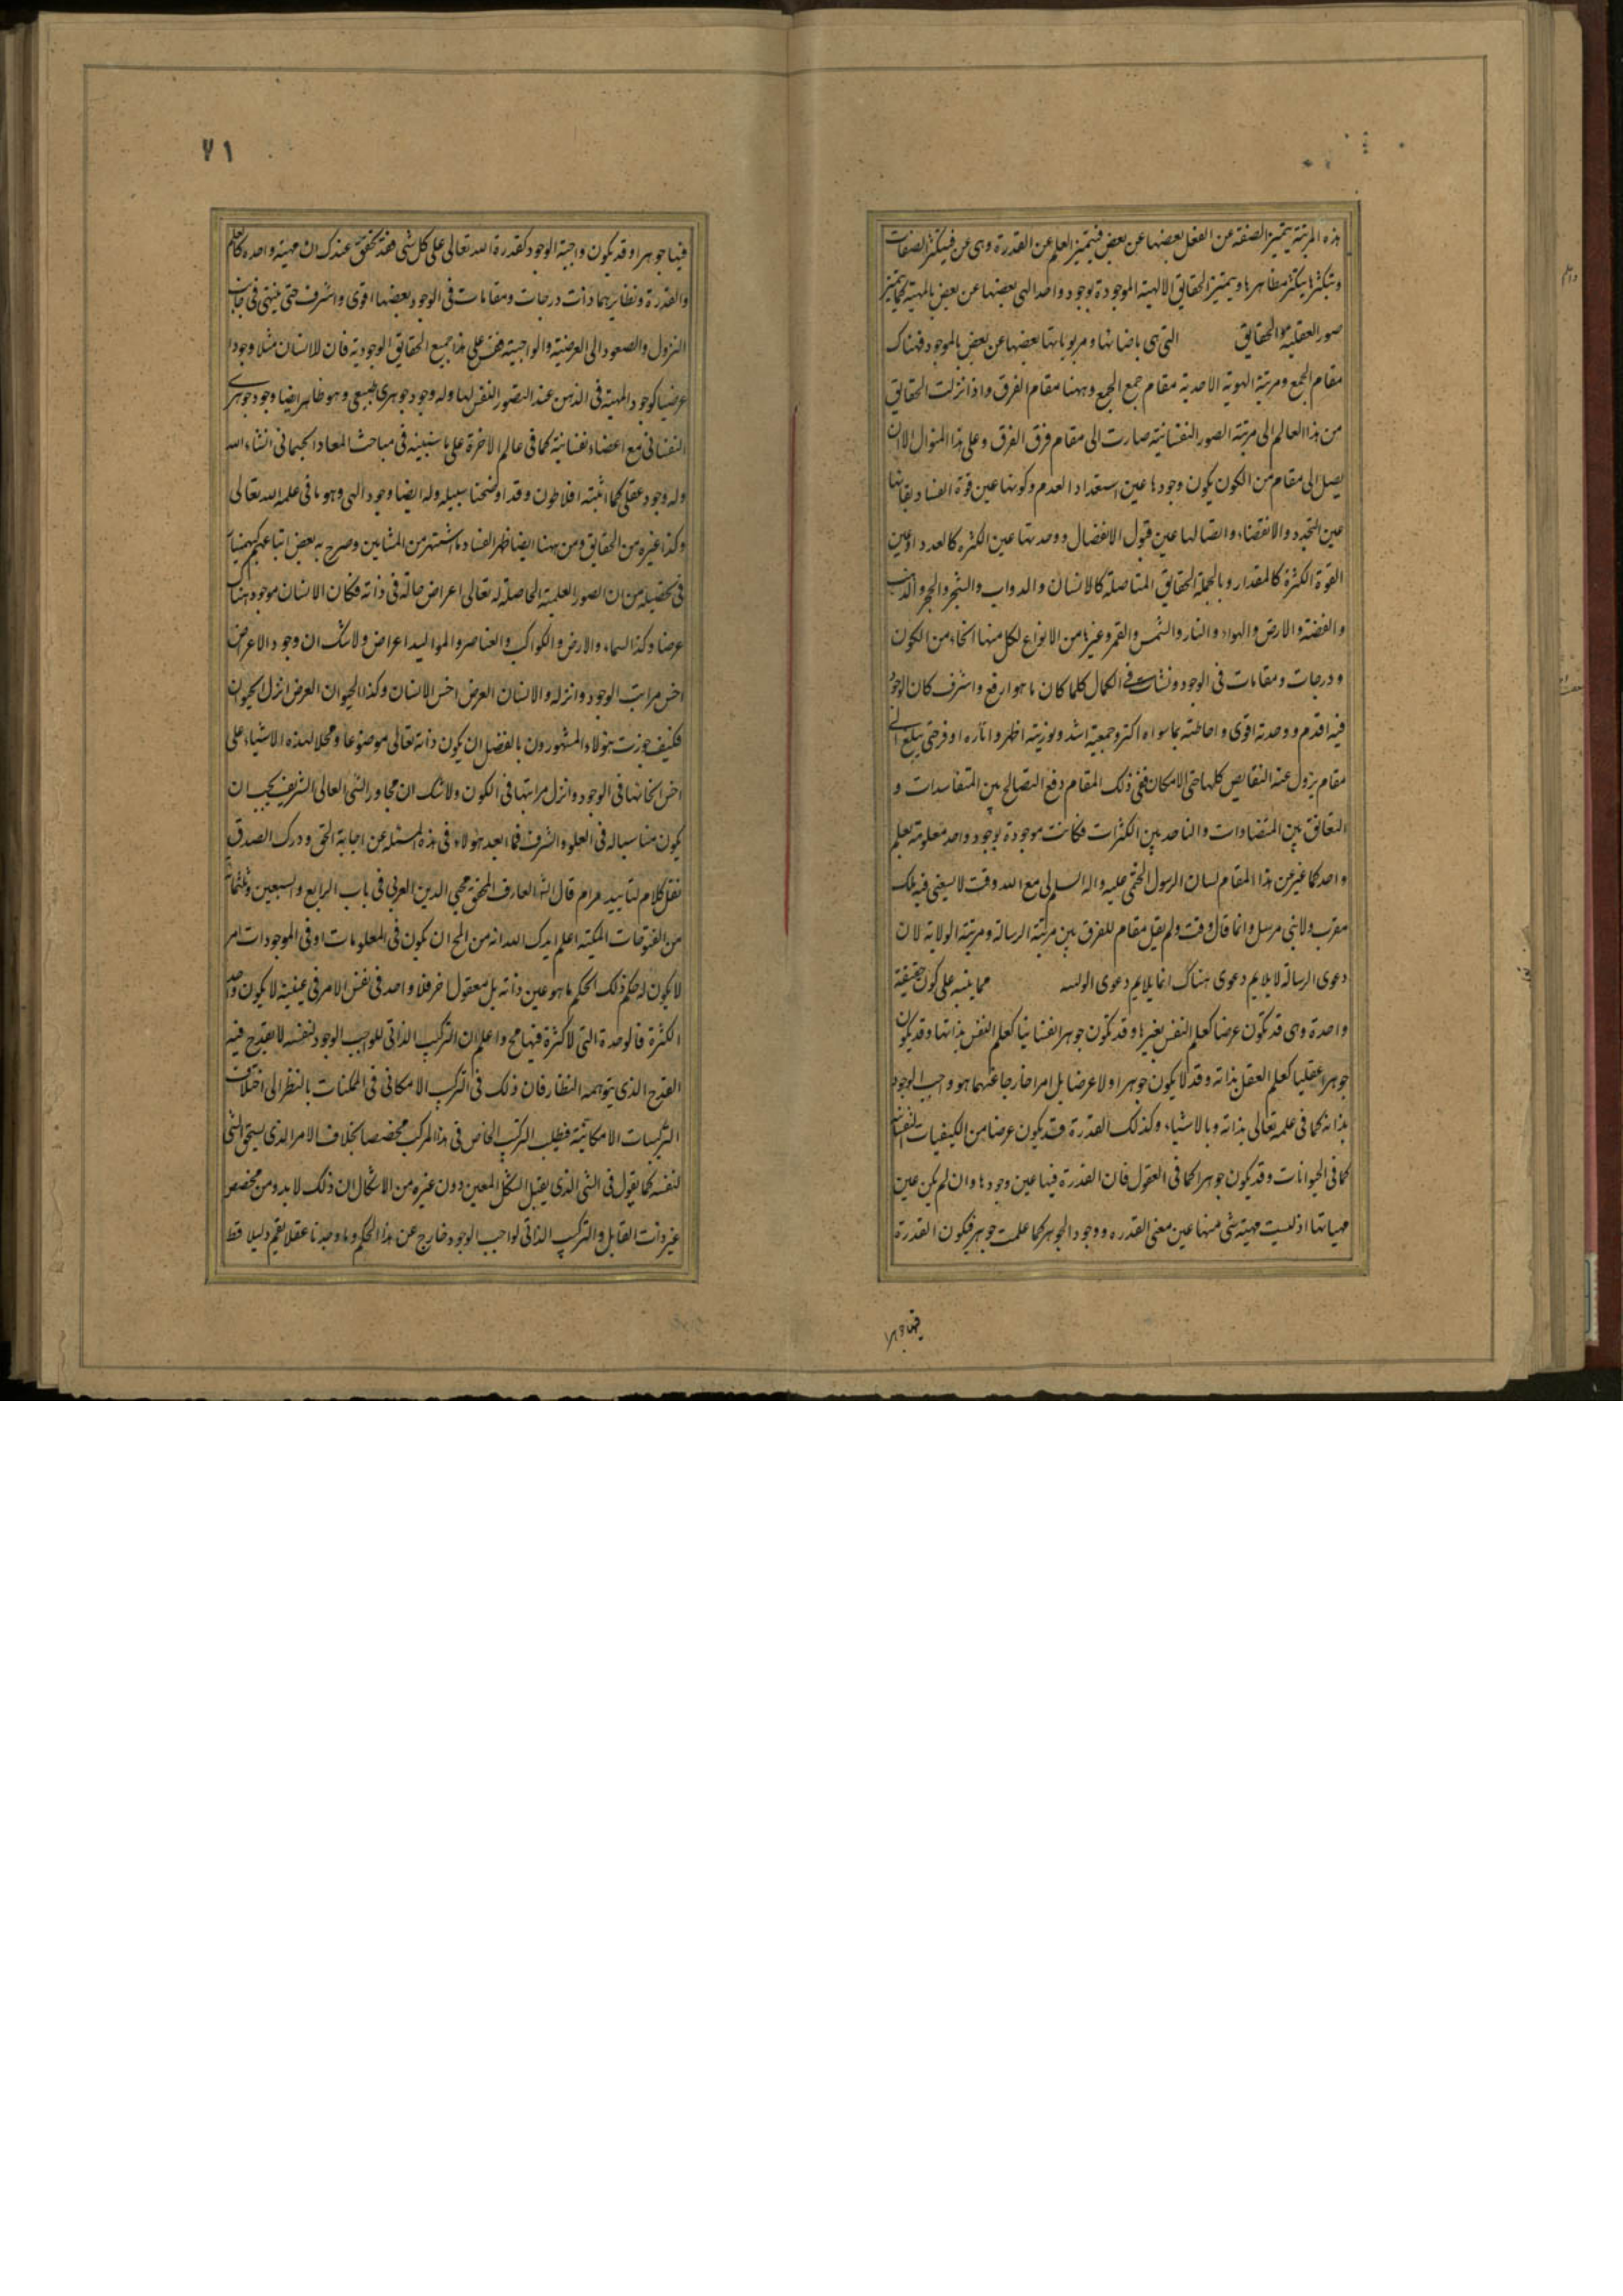 هذه المرتبة يتميز الصفة عن الفعل بعضها عن بعض فيتميز العلم عن القدرة وهى عن فيتكثر الصفات
ويتكثرها يتكثر مظاهرها ويتميز الحقايق الالهية الموجودة بوجود واحد الهى بعضها عن بعض بالمهية كما يتميز
صور العقلية الحقايق التى هى باضنانها ومربوباتها بعضها عن بعض بالموجود فهناك
مقام الجمع ومرتبة الهوية الاحدية مقام جمع الجمع وههنا مقام الفرق واذا نزلت الحقايق
من هذا العالم الى مرتبة الصور النفسانية صارت الى مقام فرق الفرق وعلى هذا المنوال الا ان
يصل الى مقام من الكون يكون وجودها عين استعداد العدم وكونها عين قوة الفساد وبقائها
عين التجدد والانقضاء واتصالها عين قبول الانفصال ووحدتها عين الكثرة كالعدد او عين
القوة الكثرة كالمقدار وبالجملة الحقايق المتاصلة كالانسان والدواب والشجر والحجر والذهب
والفضة والارض والهواء والنار والشمس والقمر وغيرها من الانواع لكل منها انحاء من الكون
ودرجات ومقامات فى الوجود ونشات فى الكمال كلما كان ما هو ارفع واشرف كان الوجود
فيه اقدم ووحدته اقوى واحاطته بما سواه اكثر وجمعيته اشد ونوريته اظهر واثاره اوفر حتى يبلغ الى
مقام يزول عنه النقايص كلها حتى الامكان ففى ذلك المقام دفع التصالح بين المتفاسدات و
التعانق بين المتضادات والتاحد بين الكثرات فكانت موجودة بوجود واحد معلومة بعلم
واحد كما عبر عن هذا المقام لسان الرسول الختمى عليه واله السلم لى مع الله وقت لا يسعنى فيه ملك
مقرب ولا نبى مرسل وانما قال وقت ولم يقل مقام للفرق بين مرتبة الرسالة ومرتبة الولاية لان
دعوى الرسالة لا يلايم دعوى هناك انما يلايم دعوى مما ينبه على كون حقيقة
واحدة وهى قد تكون عرضا كعلم النفس بغيرها وقد تكون جوهرا نفسانيا كعلم النفس بذاتها وقد يكون
جوهرا عقليا كعلم العقل بذاته وقد لا يكون جوهرا ولا عرضا بل امرا خارجا عنهما هو واجب الوجود
بذاته كما فى علمه تعالى بذاته وبالاشياء وكذلك القدرة قد يكون عرضا من الكيفيات النفسانية
كما فى الحيوانات وقد يكون جوهرا كما فى العقول فان القدرة فيها عين وجودها وان لم يكن عين
مهياتها اذ ليست مهية شى منها عين معنى القدره ووجود الجوهر كما علمت جوهر فيكون القدرة
فيها جوهرا
٧١
فيها جوهرا وقد يكون واجبة الوجود كقدرة الله تعالى على كل شى فقد تحقق عندك ان مهية واحده كالعلم
والقدرة ونظايرهما ذات درجات ومقامات فى الوجود بعضها اقوى واشرف حتى ينتهى فى جانب
النزول والصعود الى العرضية والواجبية فقس على هذا جميع الحقايق الوجودية فان للانسان مثلا وجودا
عرضيا كوجود المهية فى الذهن عند التصور النفس لها وله وجود جوهرى طبيعى وهو ظاهر ايضا وجود جوهرى
النفسانى مع اعضاء نفسانية كما فى عالم الاخرة على ما سنبينه فى مباحث المعاد الجسمانى انشاء الله
وله وجود عقلى كما اثبته افلاطون وقد اوضحنا سبيله وله ايضا وجود الهى وهو ما فى علم الله تعالى
وكذا غيره من الحقايق ومن ههنا ايضا ظهر الفساد ما اشتهر من المشايين وصرح به بعض اتباعهم كبهمنيار
فى تحصيله من ان الصور العلمية الحاصلة له تعالى اعراض حالة فى ذاته فكان الانسان موجود هناك
عرضا وكذا السماء والارض والكواكب والعناصر والمواليد اعراض ولا شك ان وجود الاعراض
اخس مراتب الوجود وانزله والانسان العرض اخس الانسان وكذا الحيوان العرض انزل الحيوان
فكيف جوزت هؤلاء المشهورون بالفضل ان يكون ذاته تعالى موضوعا ومحلا لهذه الاشياء على
اخس انحائها فى الوجود وانزل مراتبها فى الكون ولا شك ان مجاور الشى العالى الشريف يجب ان
يكون مناسبا له فى العلو والشرف فما ابعد هؤلاء فى هذه المسئله عن اجابة الحق ودرك الصدق
نقل كلام لتاييد مرام قال الشيخ العارف المحقق محيى الدين العربى فى باب الرابع والسبعين وثلثمائة
من الفتوحات المكية اعلم ايدك الله انه من المحال ان يكون فى المعلومات او فى الموجودات امر
لا يكون له حكم ذلك الحكم ما هو عين ذاته بل معقول اخر فلا واحد فى نفس الامر فى عينه لا يكون واحد
الكثرة فالوحدة التى لا كثرة فيها مح واعلم ان التركب الذاتى للواجب الوجود لنفسه لا يقدح فيه
القدح الذى يتوهمه النظار فان ذلك فى التركب الامكانى فى الممكنات بالنظر الى اختلاف
التركيبات الامكانية فيطلب التركب الخاص فى هذا المركب مخصصا بخلاف الامر الذى يستحقه الشى
لنفسه كما يقول فى الشى الذى يقبل الشكل المعين دون غيره من الاشكال ان ذلك لا بد من مخصص
غير ذات القابل والتركب الذاتى لواجب الوجود خارج عن هذا الحكم وما وجدنا عقلا يقيم دليلا قط